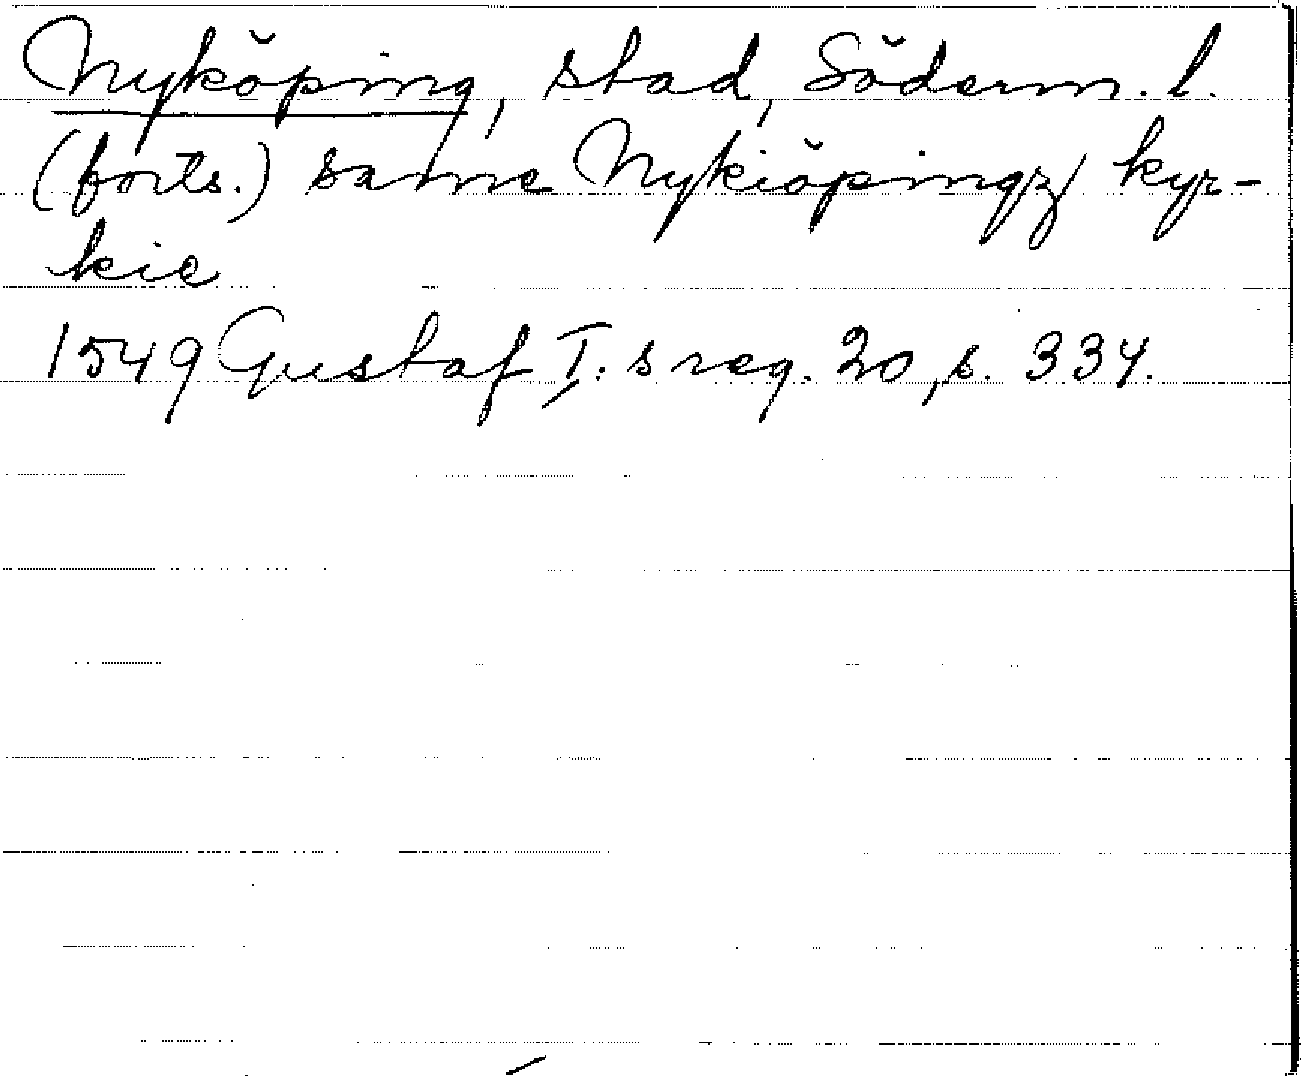 Nyköping, stad, Söderm. l.
(forts.) samme Nykiöpingz kyr-
kie
1549 Gustaf I:s reg. 20, s. 334.